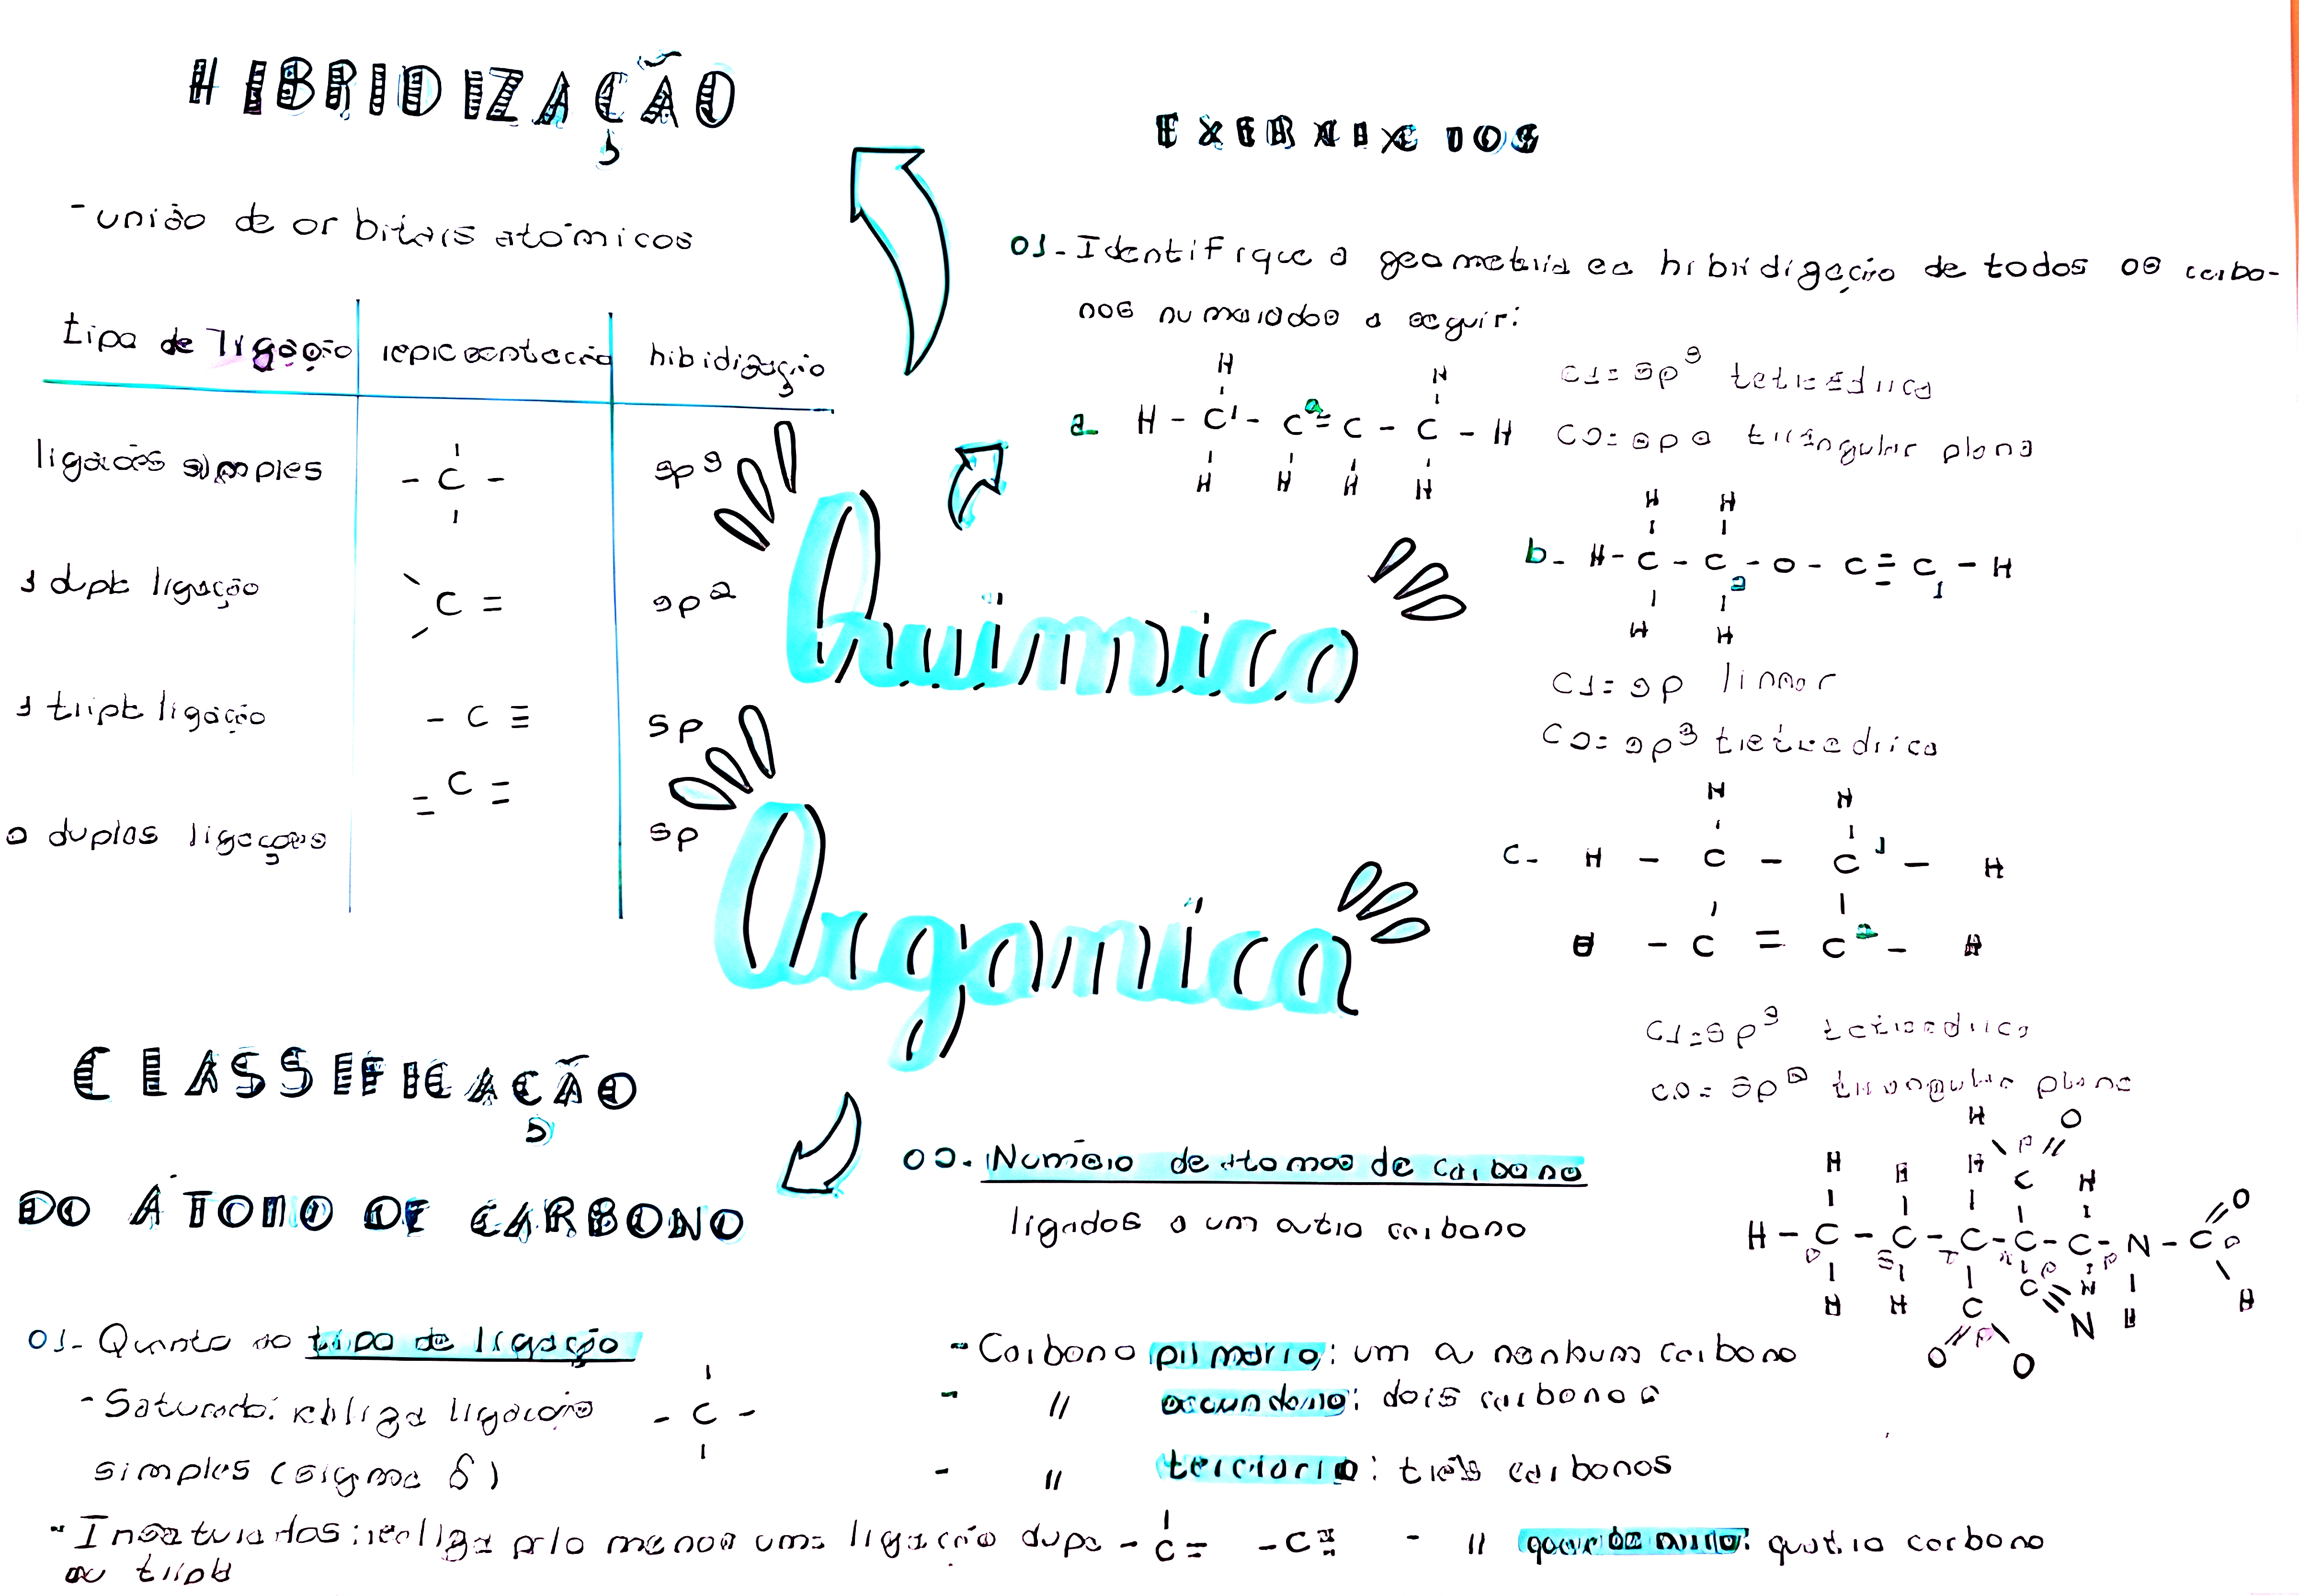 HIBRIDIZAÇÃO
- união de orbitais atômicos
tipo de ligação representação hibidização
ligações simples - C - sp3
1 dupla ligação C = sp2
1 tripla ligação - C ≡ sp
2 duplas ligações = C = sp
Química
Orgânica
EXERCÍCIOS
01- Identifique a geometria e a hibridização de todos os carbo-
nos numerados a seguir:
H H
a- H - C1 - C2 = C - C - H
H H H H
C1 = sp3 tetraédrica
C2 = sp2 triângular plana
H H
b- H - C - C2 - O - C ≡ C1 - H
H H
C1 = sp linear
C2 = sp3 tetraédrica
H H
C- H - C - C1 - H
H - C = C2 - H
C1 = sp3 tetraédrica
C2 = sp2 triangular plana
CLASSIFICAÇÃO
DO ÁTOMO DE CARBONO
01- Quanto ao tipo de ligação
- Saturado: realiza ligação - C -
simples (sigma δ)
- Insaturados: realiza pelo menos uma ligação dupla - C = - C ≡
ou tripla
02- Número de átomos de carbono
ligados a um outro carbono
- Carbono primário: um ou nenhum carbono
- " secundário: dois carbonos
- " terciário: três carbonos
- " quaternário: quatro carbono
H O
H H H C H
H - C - C - C - C - C - N - C O
H H C C ≡ N H H H
O O